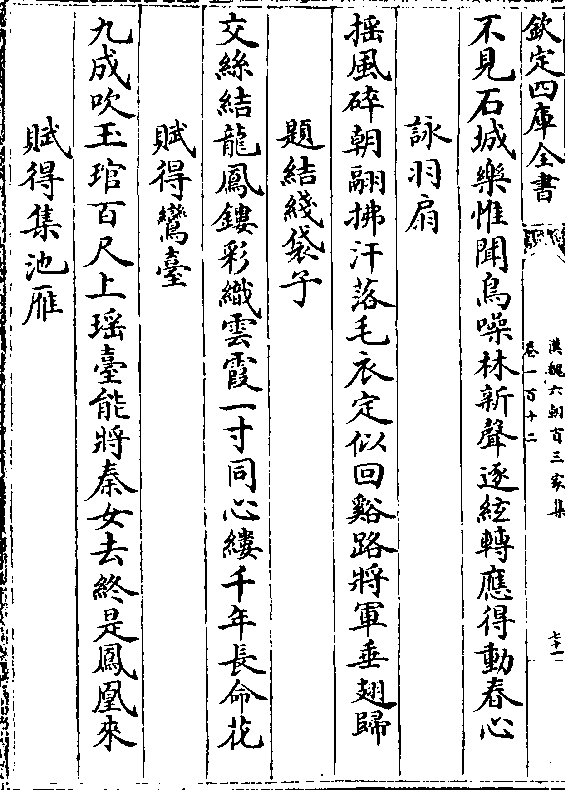 欽定四庫全書
漢魏六朝百三家集
卷一百十二
七十一
不見石城樂惟聞烏噪林新聲逐絃轉應得動春心
詠羽扇
摇風碎朝翮拂汗落毛衣定似回谿路將軍垂翅歸
題結綫袋子
交絲結龍鳳鏤彩織雲霞一寸同心縷千年長命花
賦得鸞臺
九成吹玉琯百尺上瑶臺能將秦女去終是鳳凰來
賦得集池雁